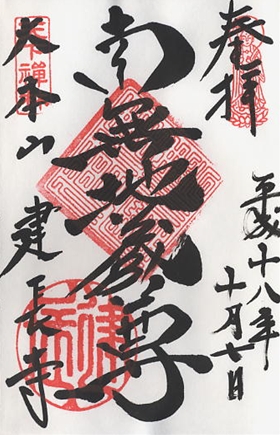 奉拝
平成十八年
十月七日
南無地蔵尊
大本山
建長寺